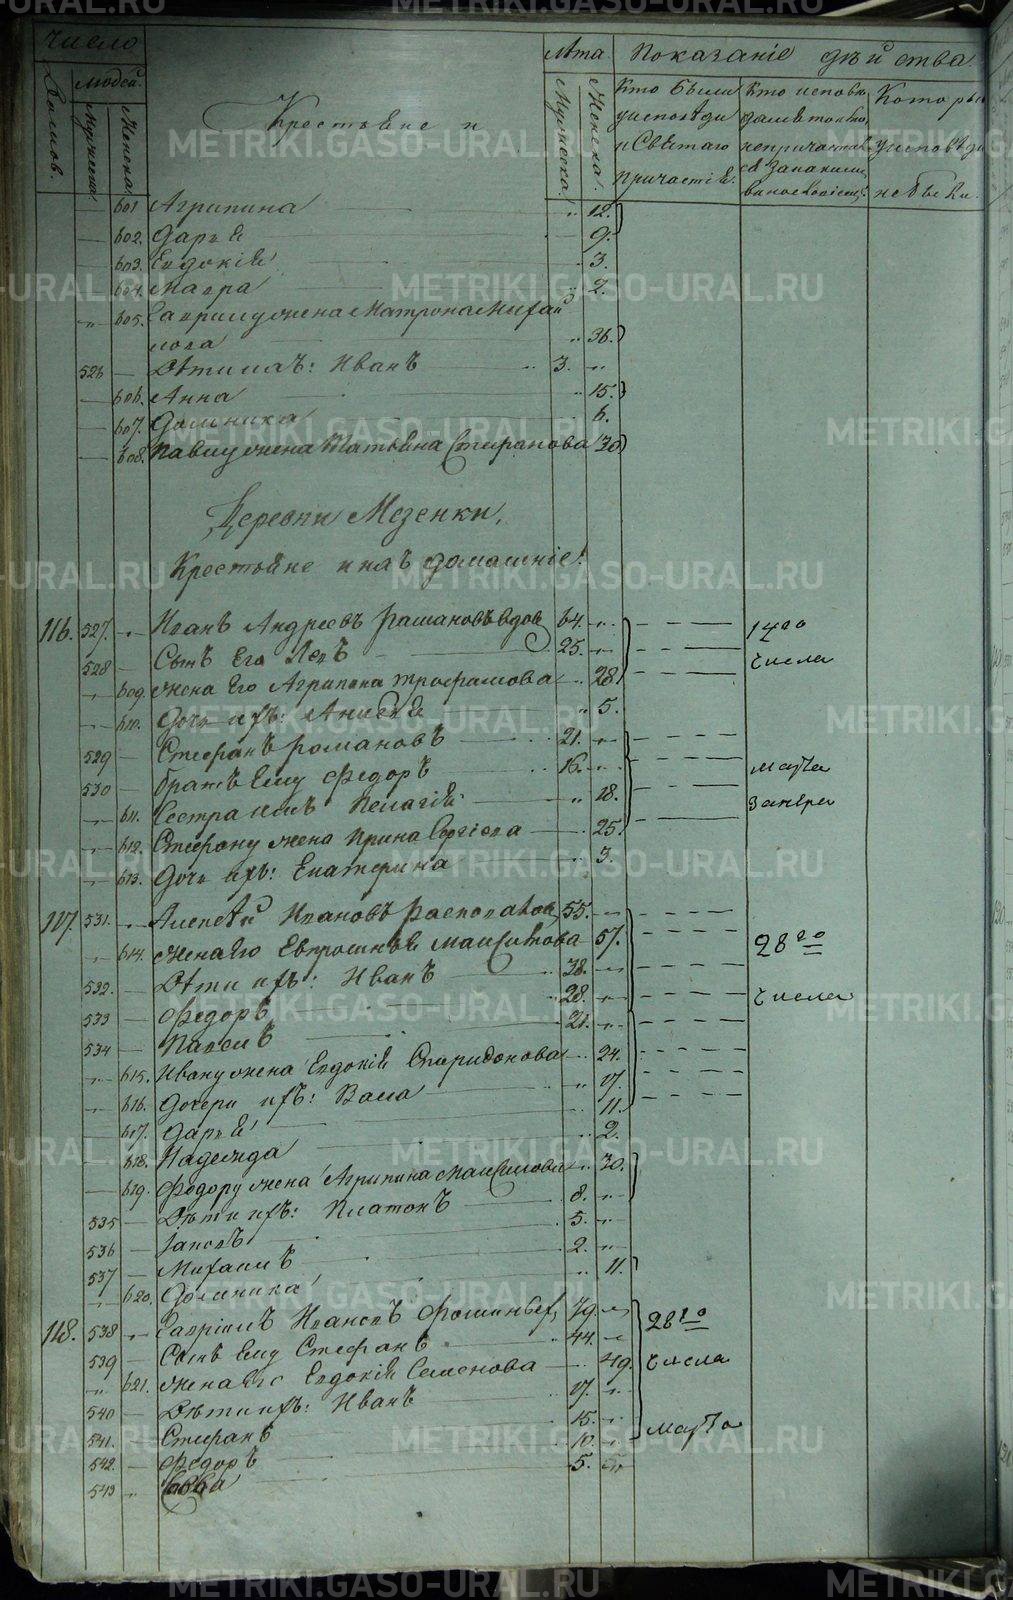 Число
Людей.
Домов.
Мужеска.
Женска.
Крестьяне и
Лѣта
Мужеска.
Женска.
Показаніе дѣйства
Кто были
у исповѣди
и Святаго
причастія.
Которые
у исповѣди
не были.
601 Агрипина " 12.
602. Дарья 9.
603. Евдокія " 3.
604. Мавра " 2.
" 605. Гаврилу жена Матрона Михай
лова " 36.
526 — Дѣти ихъ: Иванъ 3. "
606. Анна " 15.
607. Домника " 6.
608. Павлу жена Татьяна Стефанова 30
Деревни Мезенки,
Крестьяне и ихъ домашніе:
116. 527. " Иванъ Андреевъ Рамановъ вдов 64. "
528 — Сынъ его Левъ 25. "
" 609. Жена его Агрипина Трофимова " 28
" 610. Дочь ихъ: Анисья " 5.
529 — Стефанъ Романовъ 21. "
530 — Братъ ему Федоръ 16. "
" 611. Сестра имъ Пелагія " 18.
" 612. Стефану жена Ирина Сергіева 25.
" 613. Дочь ихъ: Екатерина " 3.
14го
числа
марта
117. 531. " Алексѣй Ивановъ 55. "
" 614. Жена его Евфросинья Максимова 57.
532. — Дѣти ихъ: Иванъ 38. "
533 — Федоръ 28. "
534 — 21. "
" 615. Ивану жена Евдокія Спиридонова 24.
" 616. Дочери ихъ: " 17.
617. Дарья " 11.
618. Надежда " 2.
619. Федору жена Агрипина Максимова " 30.
535 — Дѣти ихъ: Платонъ 8. "
536 — Іаковъ 5. "
537 — Михаилъ 2. "
" 620. Домника " 11.
28го
числа
118. 538 " Гавріилъ Ивановъ 79. "
539 — Сынъ ему Стефанъ 44. "
" 621. Жена его Евдокія Семенова 49.
540 — Дѣти ихъ: Иванъ 17. "
541. — Стефанъ 15. "
542. — Федоръ 10. "
543 " Савва 5. "
28го
числа
марта
METRIKI.GASO-URAL.RU